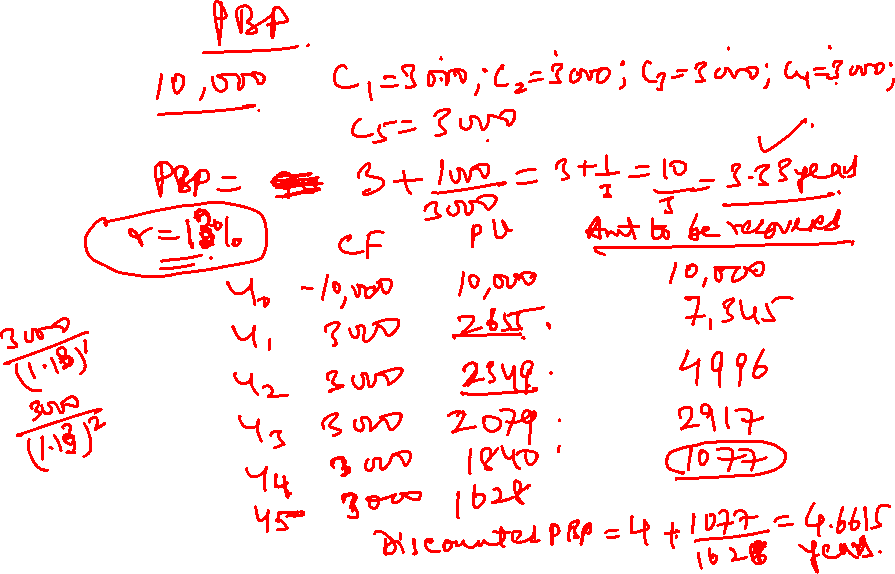 PBP
10,000 C1=3000; C2=3000; C3=3000; C4=3000;
C5=3000
PBP= 3+1000/3000=3+1/3=10/3=3.33years
r=13%
CF PV Amt to be recovered
Y0 -10,000 10,000 10,000
Y1 3000 2655. 7,345
3000/(1.13)^1
Y2 3000 2349. 4996
3000/(1.13)^2
Y3 3000 2079. 2917
Y4 3000 1840. 1077
Y5 3000 1628
Discounted PBP=4+1077/1628=4.6615
years.